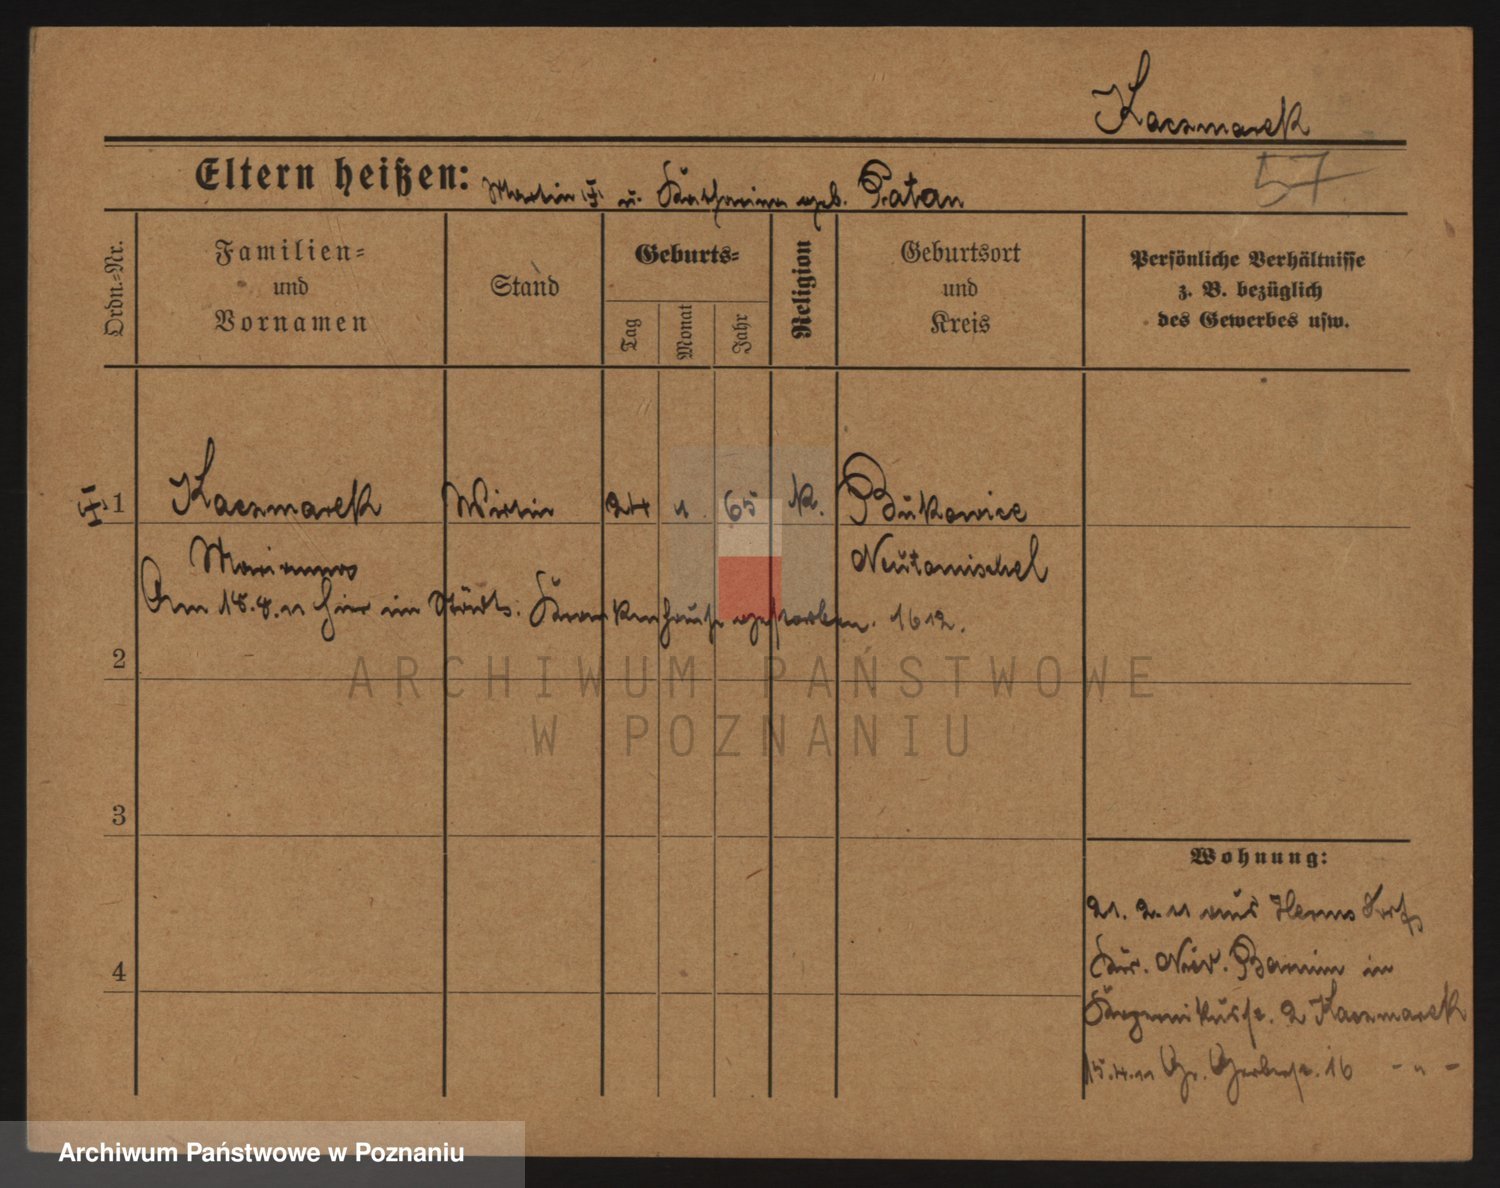 Kaczmarek
57
Eltern heißen: Martin † u. Katharina geb. Patan
Ordn.-Nr.
Familien-
und
Vornamen
Stand
Geburts-
Tag
Monat
Jahr
Religion
Geburtsort
und
Kreis
Persönliche Verhältnisse
z. B. bezüglich
des Gewerbes usw.
† 1 Kaczmarek Wirtin 24 65 k. Bukowice
Marianna Neutomischel
Am 18.8.11 hier im Städt. Krankenhause gestorben. 1612.
2
3
4
Wohnung:
21. 2. 11 aus Hermsdorf
Kr. Nied. Barnim in
2 Kaczmarek
15.4.11 Gr. Gerberstr. 16 - " -
ARCHIWUM PAŃSTWOWE
W POZNANIU
Archiwum Państwowe w Poznaniu